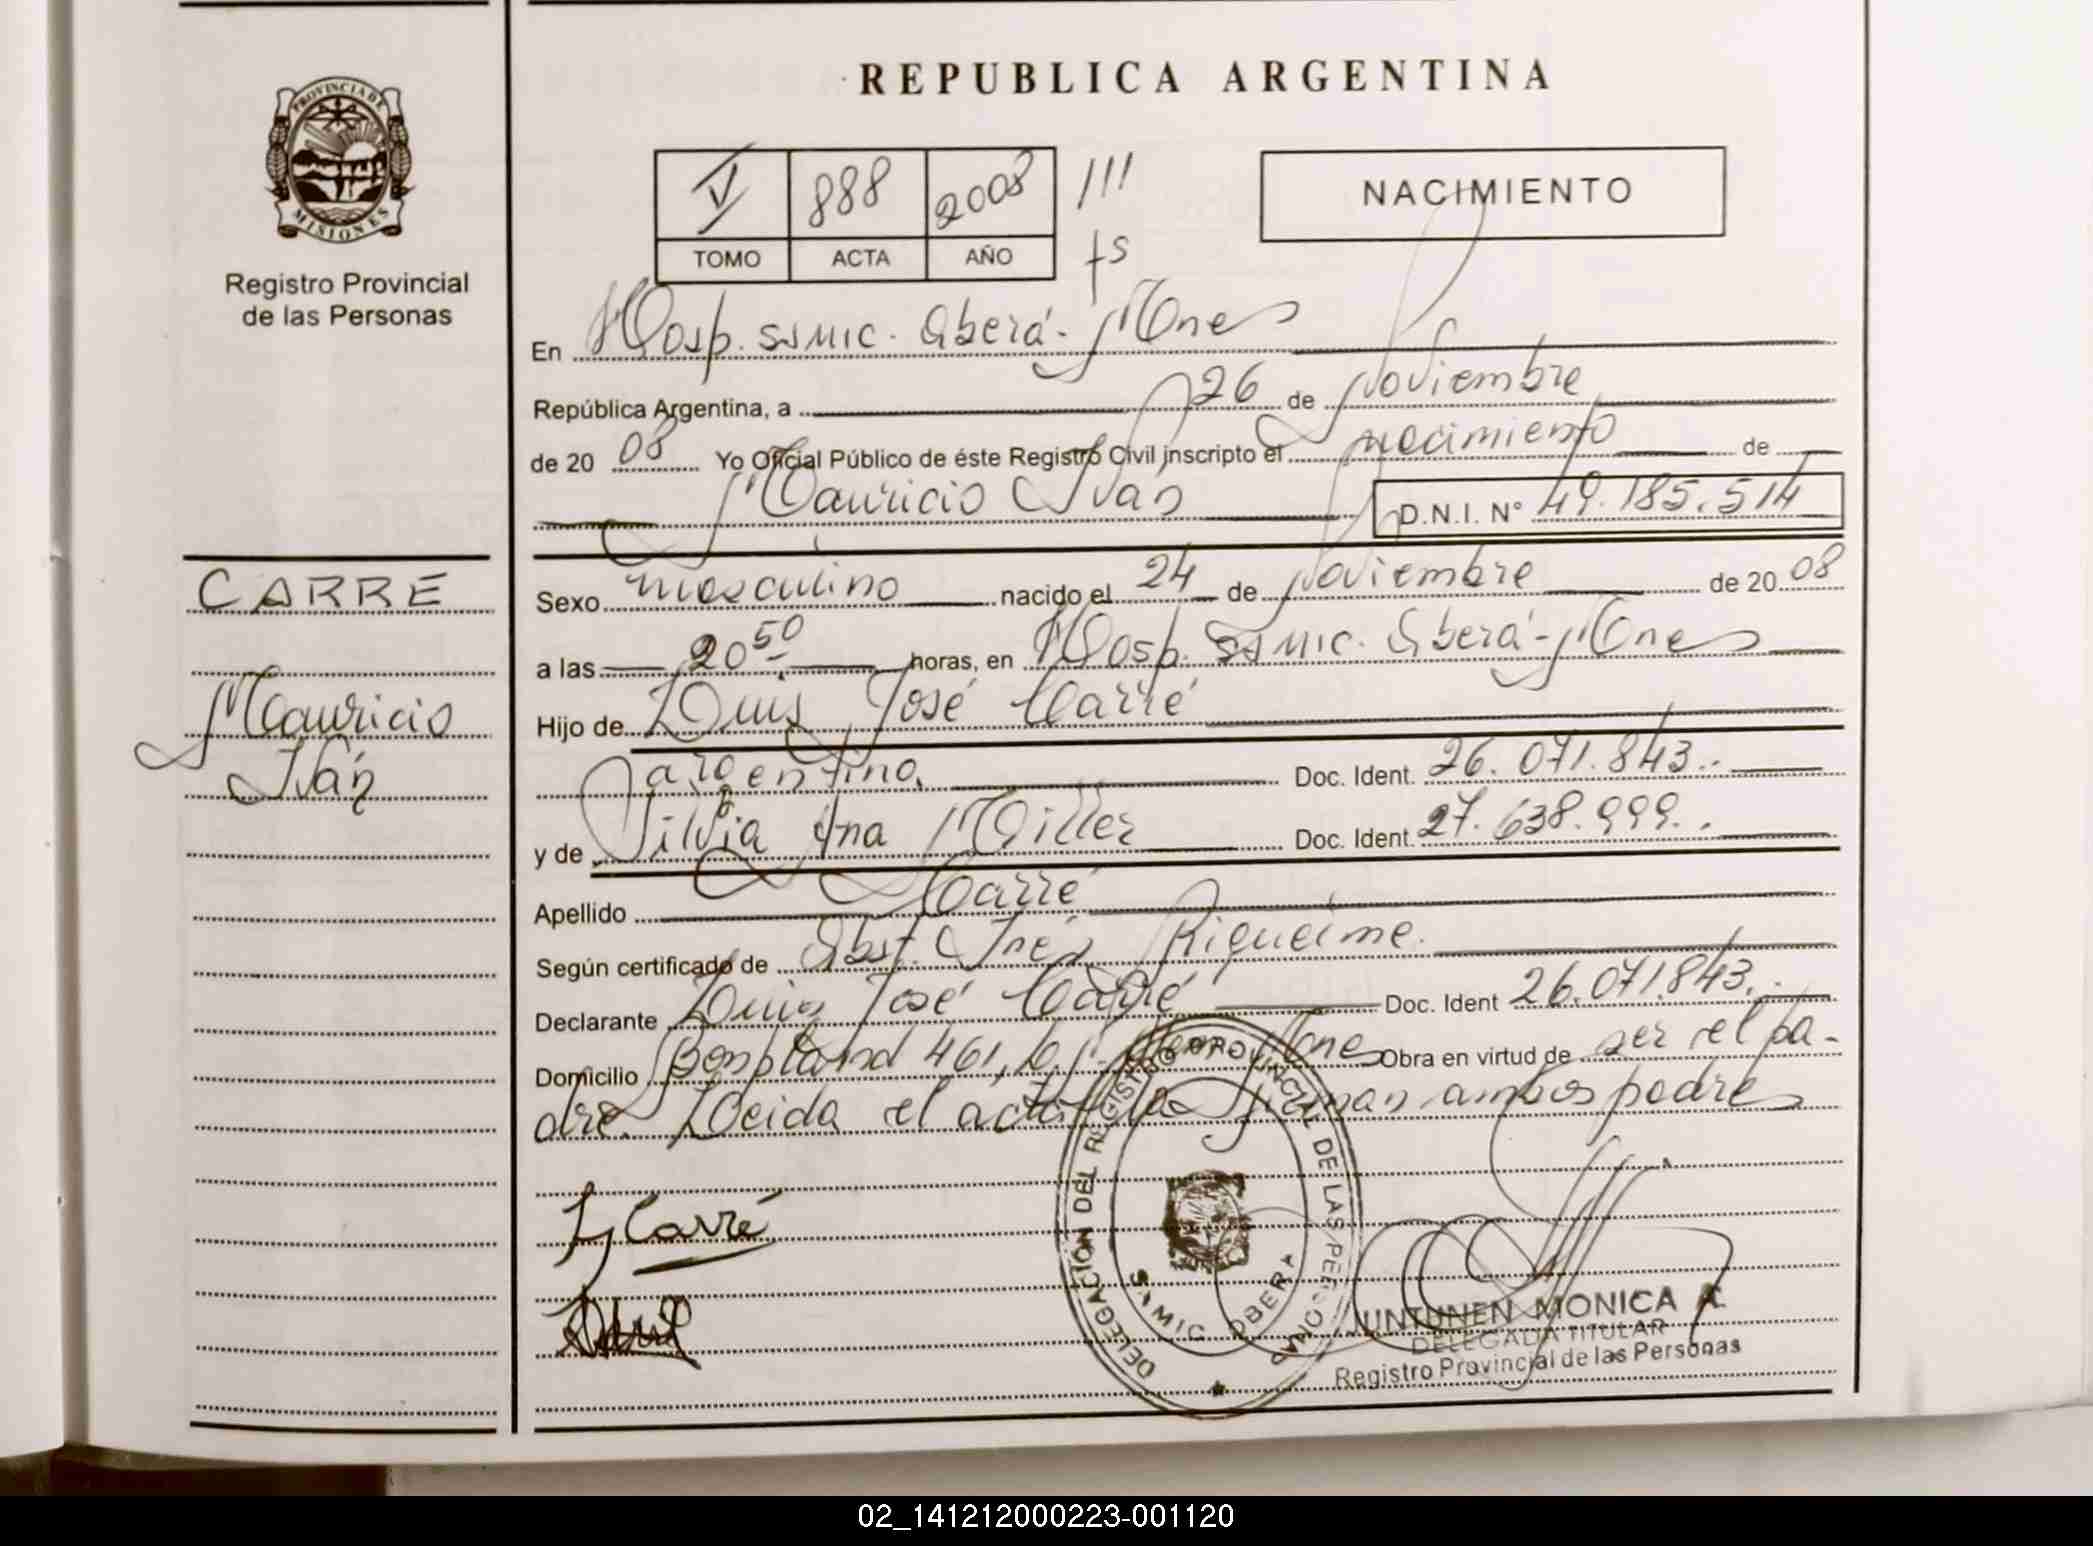 REPUBLICA ARGENTINA
PROVINCIA DE
MISIONES
Registro Provincial
de las Personas
V 888 2008 111
TOMO ACTA AÑO fs
NACIMIENTO
En Hosp. SAMIC. Oberá - Mnes
República Argentina, a 26 de Noviembre
de 20 08 Yo Oficial Público de éste Registro Civil inscripto el nacimiento de
Mauricio Iván D.N.I. N° 49.185.514
CARRE
Mauricio
Iván
Sexo masculino nacido el 24 de Noviembre de 20 08
a las 20 50 horas, en Hosp. SAMIC. Oberá - Mnes
Hijo de Luis José Carré
argentino. Doc. Ident. 26.071.843.
y de Silvia Ana Miller Doc. Ident. 27.638.999.
Apellido Carré
Según certificado de Obst. Inés Riquelme.
Declarante Luis José Carré Doc. Ident 26.071.843.
Domicilio Bonpland 461, Mnes Obra en virtud de ser el pa-
dre. Leida el acta la firman ambos padres
L J Carré
DELEGACIÓN DEL REGISTRO PROVINCIAL DE LAS PERSONAS
SAMIC OBERA
JUNTUNEN MONICA A.
DELEGADA TITULAR
Registro Provincial de las Personas
02_141212000223-001120